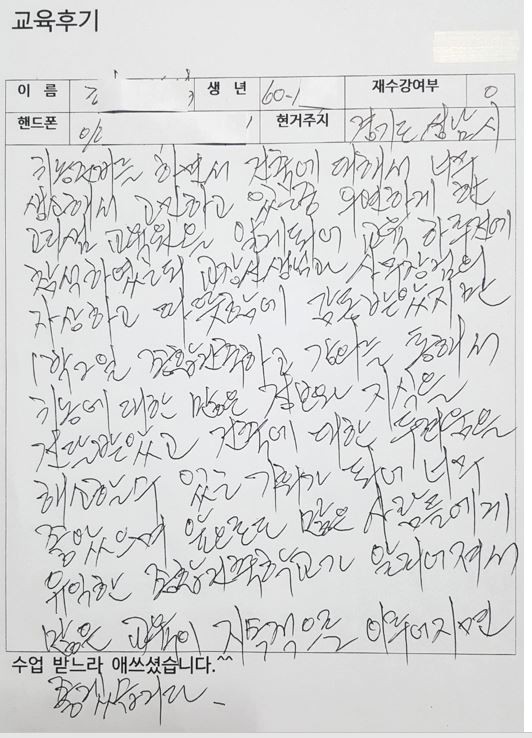 교육후기
이 름 생 년 60-1 재수강여부 0
핸드폰 현거주지 경기도 성남시
귀농준비를 하면서 건축에 대해서 너무
생소해서 고민하고 있을중 우연하게 한
교육원을 알게되어 교육 하루전에
참석하였는데 교장선생님과
자상하고 따뜻함에 감동받았지만
1박2일 황토건축학교 강의를 통해서
귀농에 대한 많은 정보와 지식을
전달받았고 건축에 대한 두려움을
해소할수 있는 기회가 되어 너무
좋았으며 앞으로도 많은 사람들에게
유익한 황토건축학교가 알려져서
많은 교육이 지속적으로 이루어지면
수업 받느라 애쓰셨습니다.^^
좋겠습니다.